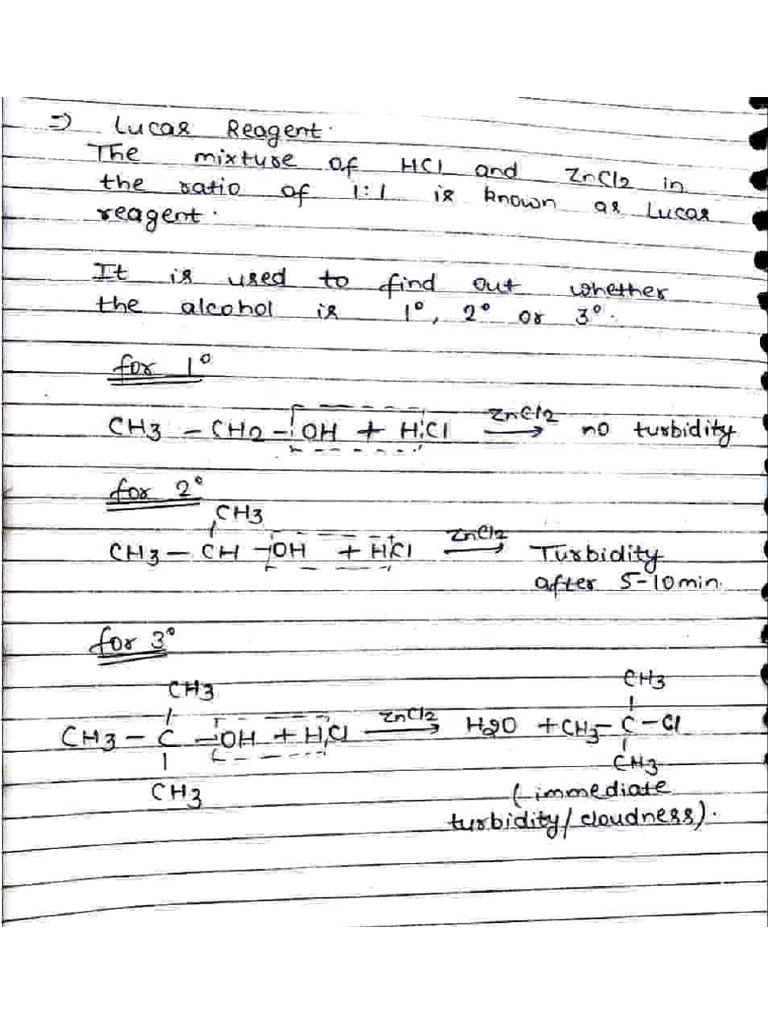 ⇒ Lucas Reagent.
The mixture of HCl and ZnCl2 in
the ratio of 1:1 is known as Lucas
reagent.
It is used to find out whether
the alcohol is 1°, 2° or 3°.
for 1°
CH3 – CH2 – OH + HCl ZnCl2→ no turbidity
for 2°
CH3
CH3 – CH – OH + HCl ZnCl2→ Turbidity
after 5-10 min.
for 3°
CH3 CH3
CH3 – C – OH + HCl ZnCl2→ H2O + CH3 – C – Cl
CH3 CH3
(immediate
turbidity/cloudness).